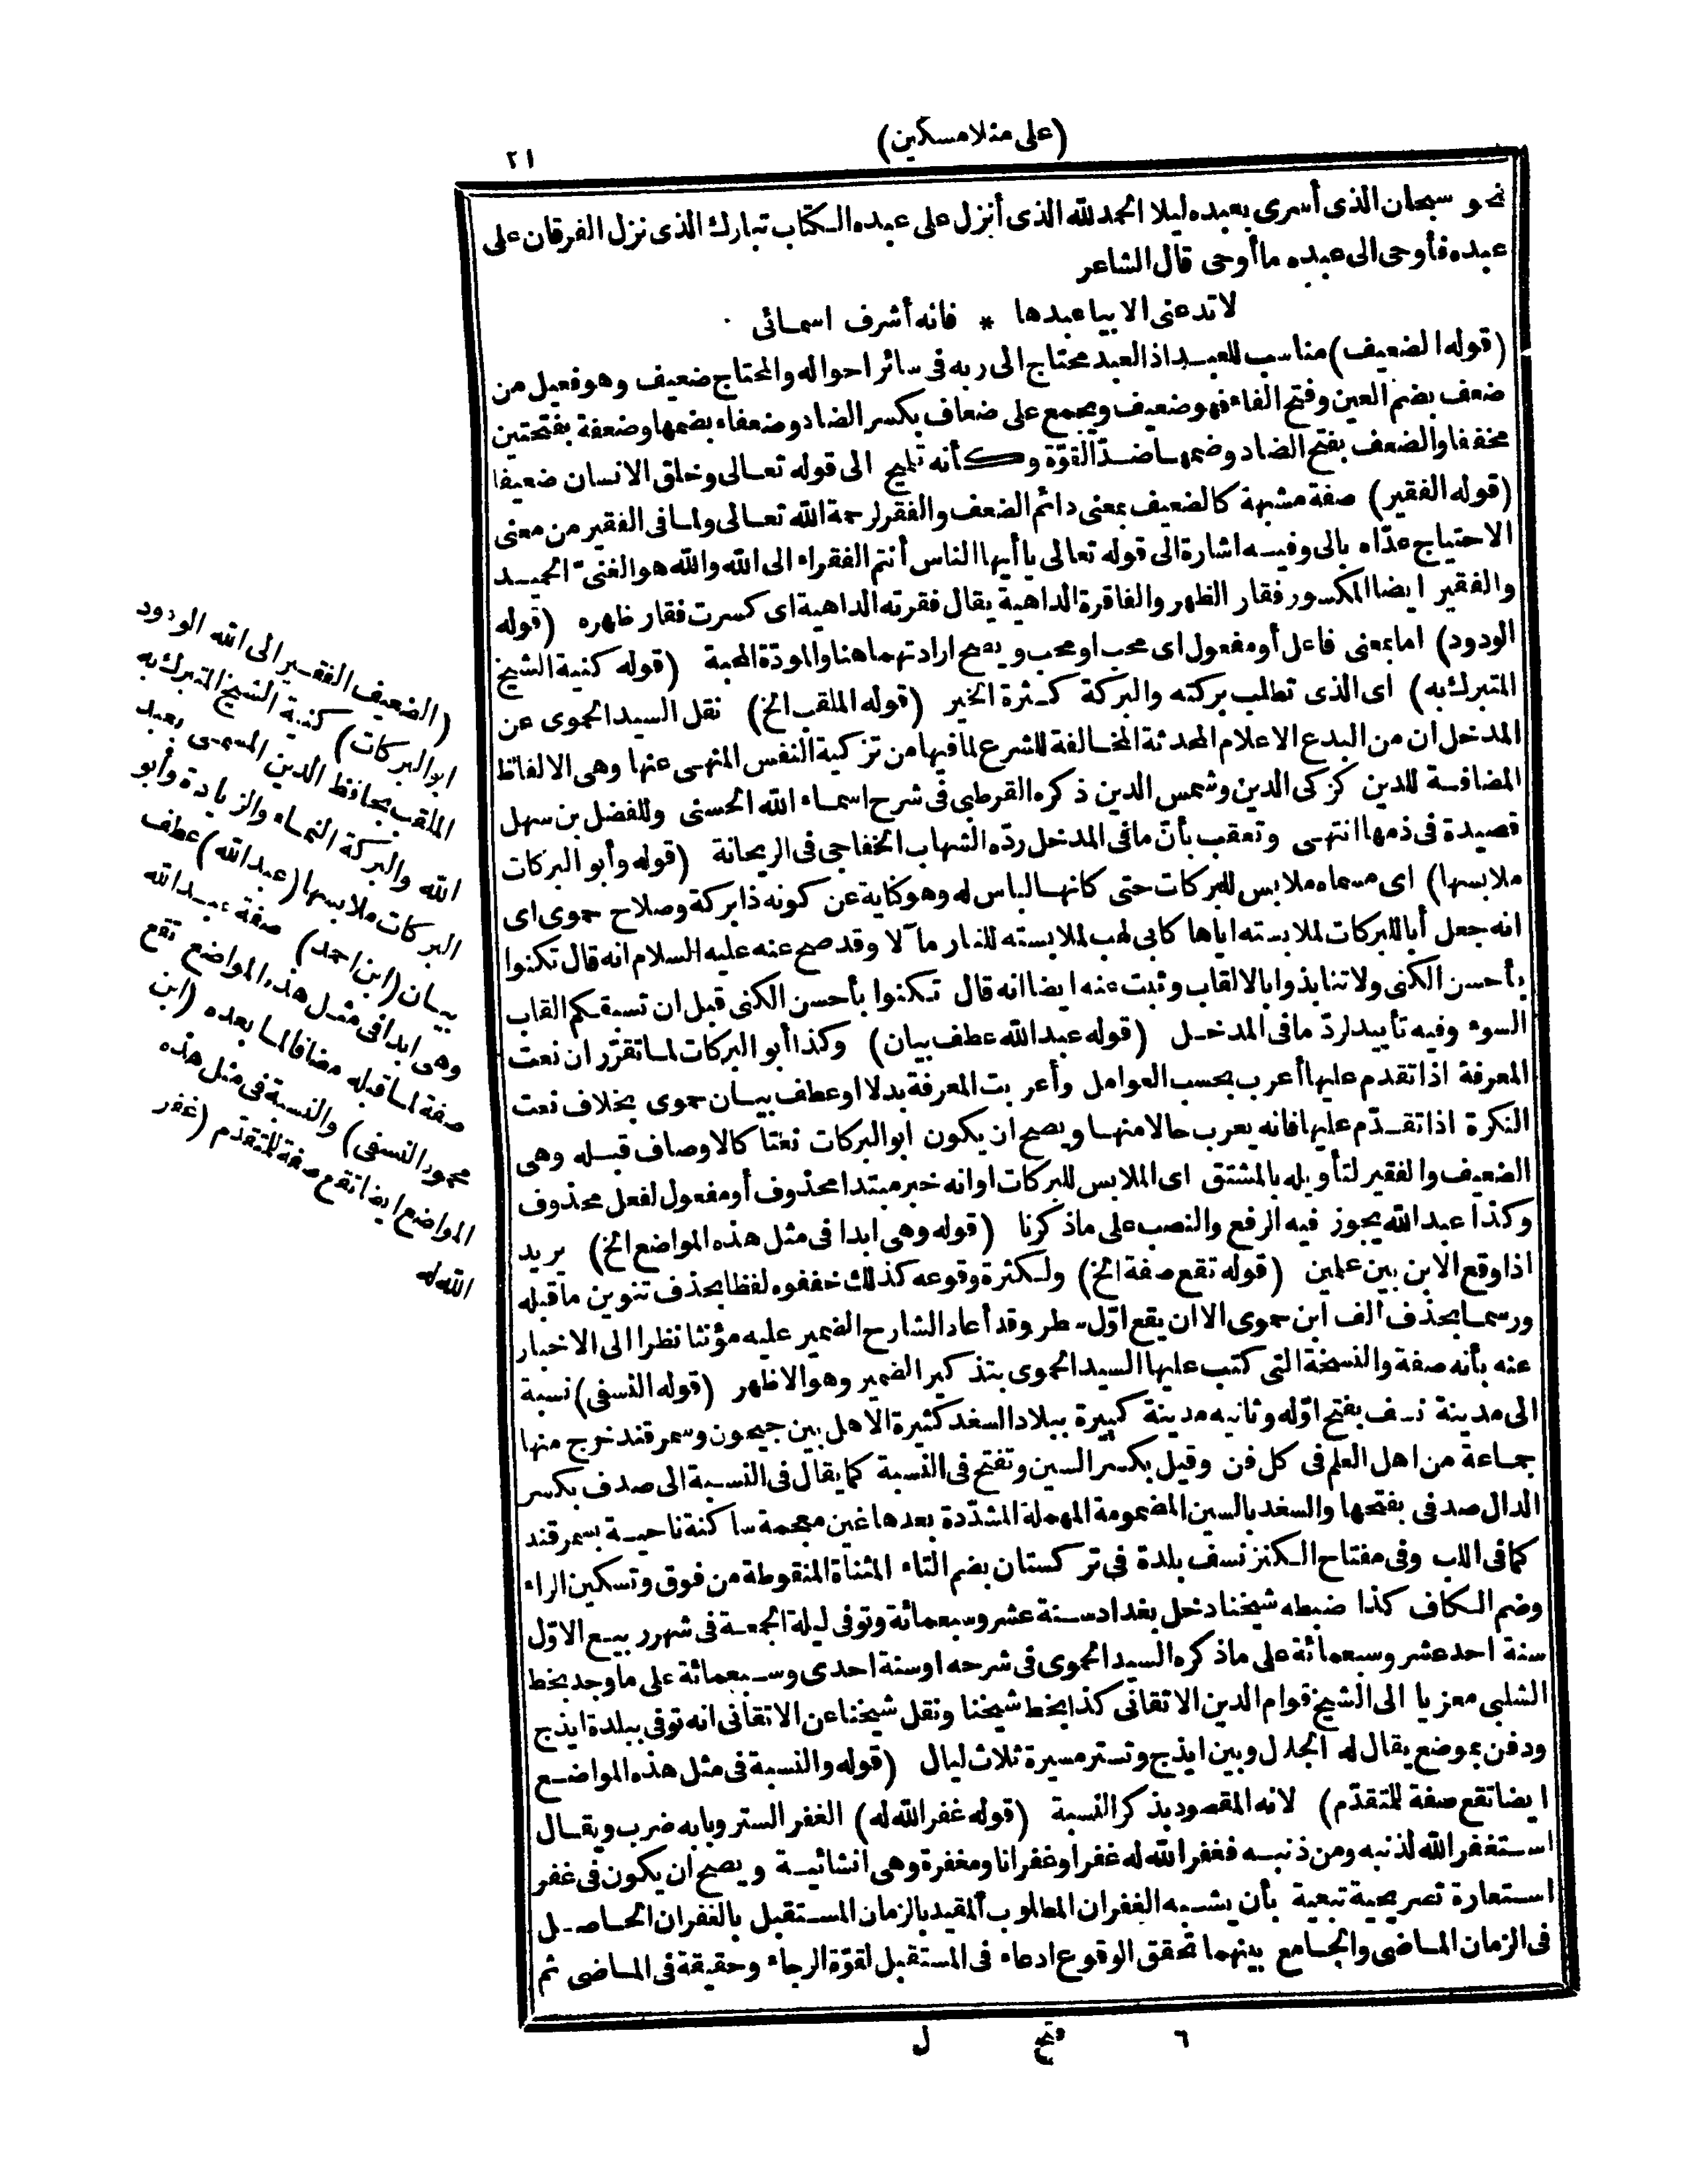 (على منلا مسكين)
٢١
نحو سبحان الذى أسرى بعبده ليلا الحمد لله الذى أنزل على عبده الكتاب تبارك الذى نزل الفرقان على
عبده فأوحى الى عبده ما أوحى قال الشاعر
لا تدعنى الا بيا عبدها * فانه أشرف اسمائى
(قوله الضعيف) مناسب للعبد اذ العبد محتاج الى ربه فى سائر احواله والمحتاج ضعيف وهو فعيل من
ضعف بضم العين وفتح الفاء فهو ضعيف ويجمع على ضعاف بكسر الضاد وضعفاء بضمها وضعفة بفتحتين
مخففا والضعف بفتح الضاد وضمها ضدّ القوّة وكأنه تلميح الى قوله تعالى وخلق الانسان ضعيفا
(قوله الفقير) صفة مشبهة كالضعيف بمعنى دائم الضعف والفقر لرحمة الله تعالى ولما فى الفقير من معنى
الاحتياج عدّاه بالى وفيه اشارة الى قوله تعالى يا أيها الناس أنتم الفقراء الى الله والله هو الغنىّ الحميد
والفقير ايضا المكسور فقار الظهر والفاقرة الداهية يقال فقرته الداهية اى كسرت فقار ظهره (قوله
الودود) اما بمعنى فاعل أو مفعول اى محب او محب ويصح ارادتهما هنا والمودّة المحبة (قوله كنية الشيخ
المتبرك به) اى الذى تطلب بركته والبركة كثرة الخير (قوله الملقب الخ) نقل السيد الحموى عن
المدخل ان من البدع الاعلام المحدثة المخالفة للشرع لما فيها من تزكية النفس المنهى عنها وهى الالفاظ
المضافة للدين كزكى الدين وشمس الدين ذكره القرطبى فى شرح اسماء الله الحسنى وللفضل بن سهل
قصيدة فى ذمها انتهى وتعقب بأنّ ما فى المدخل ردّه الشهاب الخفاجى فى الريحانة (قوله وأبو البركات
ملابسها) اى مسماه ملابس للبركات حتى كانها لباس له وهو كناية عن كونه ذا بركة وصلاح حموى اى
انه جعل أبا للبركات لملابسته اياها كابى لهب لملابسته للنار مآلا وقد صح عنه عليه السلام انه قال تكنوا
بأحسن الكنى ولا تنابذوا بالالقاب وثبت عنه ايضا انه قال تكنوا بأحسن الكنى قبل ان تسبقكم القاب
السوء وفيه تأييد لردّ ما فى المدخل (قوله عبد الله عطف بيان) وكذا أبو البركات لما تقرّر ان نعت
المعرفة اذا تقدم عليها أعرب بحسب العوامل وأعربت المعرفة بدلا او عطف بيان حموى بخلاف نعت
النكرة اذا تقدّم عليها فانه يعرب حالا منها ويصح ان يكون ابو البركات نعتا كالاوصاف قبله وهى
الضعيف والفقير لتأويله بالمشتق اى الملابس للبركات او انه خبر مبتدا محذوف أو مفعول لفعل محذوف
وكذا عبد الله يجوز فيه الرفع والنصب على ما ذكرنا (قوله وهى ابدا فى مثل هذه المواضع الخ) يريد
اذا وقع الابن بين علمين (قوله تقع صفة الخ) ولكثرة وقوعه كذلك خففوه لفظا بحذف تنوين ما قبله
ورسما بحذف ألف ابن حموى الا ان يقع اوّل سطر وقد أعاد الشارح الضمير عليه مؤنثا نظرا الى الاخبار
عنه بأنه صفة والنسخة التى كتب عليها السيد الحموى بتذكير الضمير وهو الاظهر (قوله النسفى) نسبة
الى مدينة نسف بفتح اوّله وثانيه مدينة كبيرة ببلاد السغد كثيرة الاهل بين جيحون وسمرقند خرج منها
جماعة من اهل العلم فى كل فن وقيل بكسر السين وتفتح فى النسبة كما يقال فى النسبة الى صدف بكسر
الدال صدفى بفتحها والسغد بالسين المضمومة المهملة المشدّدة بعدها غين معجمة ساكنة ناحية بسمرقند
كما فى اللب وفى مفتاح الكنز نسف بلدة فى تركستان بضم التاء المثناة المنقوطة من فوق وتسكين الراء
وضم الكاف كذا ضبطه شيخنا دخل بغداد سنة عشر وسبعمائة وتوفى ليلة الجمعة فى شهر ربيع الاوّل
سنة احد عشر وسبعمائة على ما ذكره السيد الحموى فى شرحه او سنة احدى وسبعمائة على ما وجد بخط
الشلبى معزيا الى الشيخ قوام الدين الاتقانى كذا بخط شيخنا ونقل شيخنا عن الاتقانى انه توفى ببلدة ايذج
ودفن بموضع يقال له الجلال وبين ايذج وتستر مسيرة ثلاث ليال (قوله والنسبة فى مثل هذه المواضع
ايضا تقع صفة للمتقدّم) لانه المقصود بذكر النسبة (قوله غفر الله له) الغفر الستر وبابه ضرب ويقال
استغفر الله لذنبه ومن ذنبه فغفر الله له غفرا وغفرانا ومغفرة وهى انشائية ويصح ان يكون فى غفر
استعارة تصريحية تبعية بأن يشبه الغفران المطلوب المقيد بالزمان المستقبل بالغفران الحاصل
فى الزمان الماضى والجامع بينهما تحقق الوقوع ادعاء فى المستقبل لقوّة الرجاء وحقيقة فى الماضى ثم
(الضعيف الفقير الى الله الودود
ابو البركات) كنية الشيخ المتبرك به
الملقب بحافظ الدين المسمى بعبد
الله والبركة النماء والزيادة وأبو
البركات ملابسها (عبد الله) عطف
بيان (ابن احمد) صفة عبد الله
وهى ابدا فى مثل هذه المواضع تقع
صفة لما قبله مضافا لما بعده (ابن
محمود النسفى) والنسبة فى مثل هذه
المواضع ايضا تقع صفة للمتقدّم (غفر
الله له
٦ فتح ل